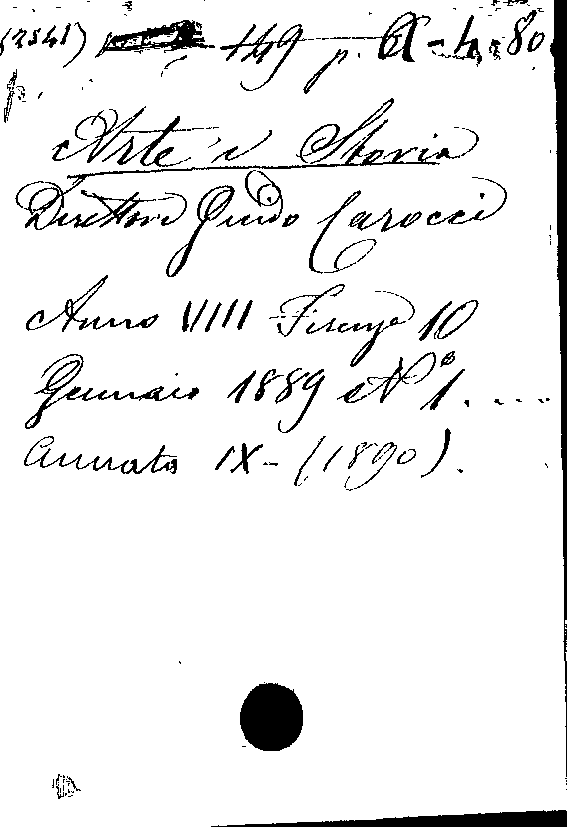 (2541) 149 p. A-4-80
p.
Arte e Storia
Direttore Guido Carocci
Anno VIII Firenze 10
Gennaio 1889 N° 1. ....
Annata IX - (1890).